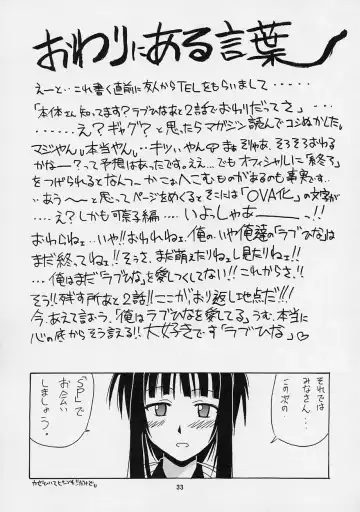 おわりにある言葉
えーと・・これ書く直前に友人からTELをもらいまして・・・・・
「本体さん知ってます?ラブひなあと2話でおわりだってさ」・・・・
・・・・・・・え?ギャグ?と思ったらマガジン読んでコシぬかした。
マジやん。本当やん。・・キツいやん
かなー?って予想はあったです。ええ・・でもオフィシャルに「終了」
をつげられると
・・あう〜と思ってページをめくるとそこには「OVA化」の文字が
・・・え?しかも可奈子編・・・・いよっしゃあーーっ!!
おわらねェ・・いや!!おわれねェ!俺の・いや俺達の「ラブひな」は
まだ終ってねェ!!そうさ、まだ萌えたりねェし見たりねェ!!
・・・俺はまだ「ラブひな」を愛しつくしてない!!これからさ!!
そう!!残す所あと2話!!ここが、おり返し地点だ!!!
今、あえて言おう、「俺はラブひなを愛してる」うむ、本当に
心の底からそう言える!!大好きです「ラブひな」♡
それでは
みなさん・・・
この次の・
「SP」で
お会い
しましょう。
33